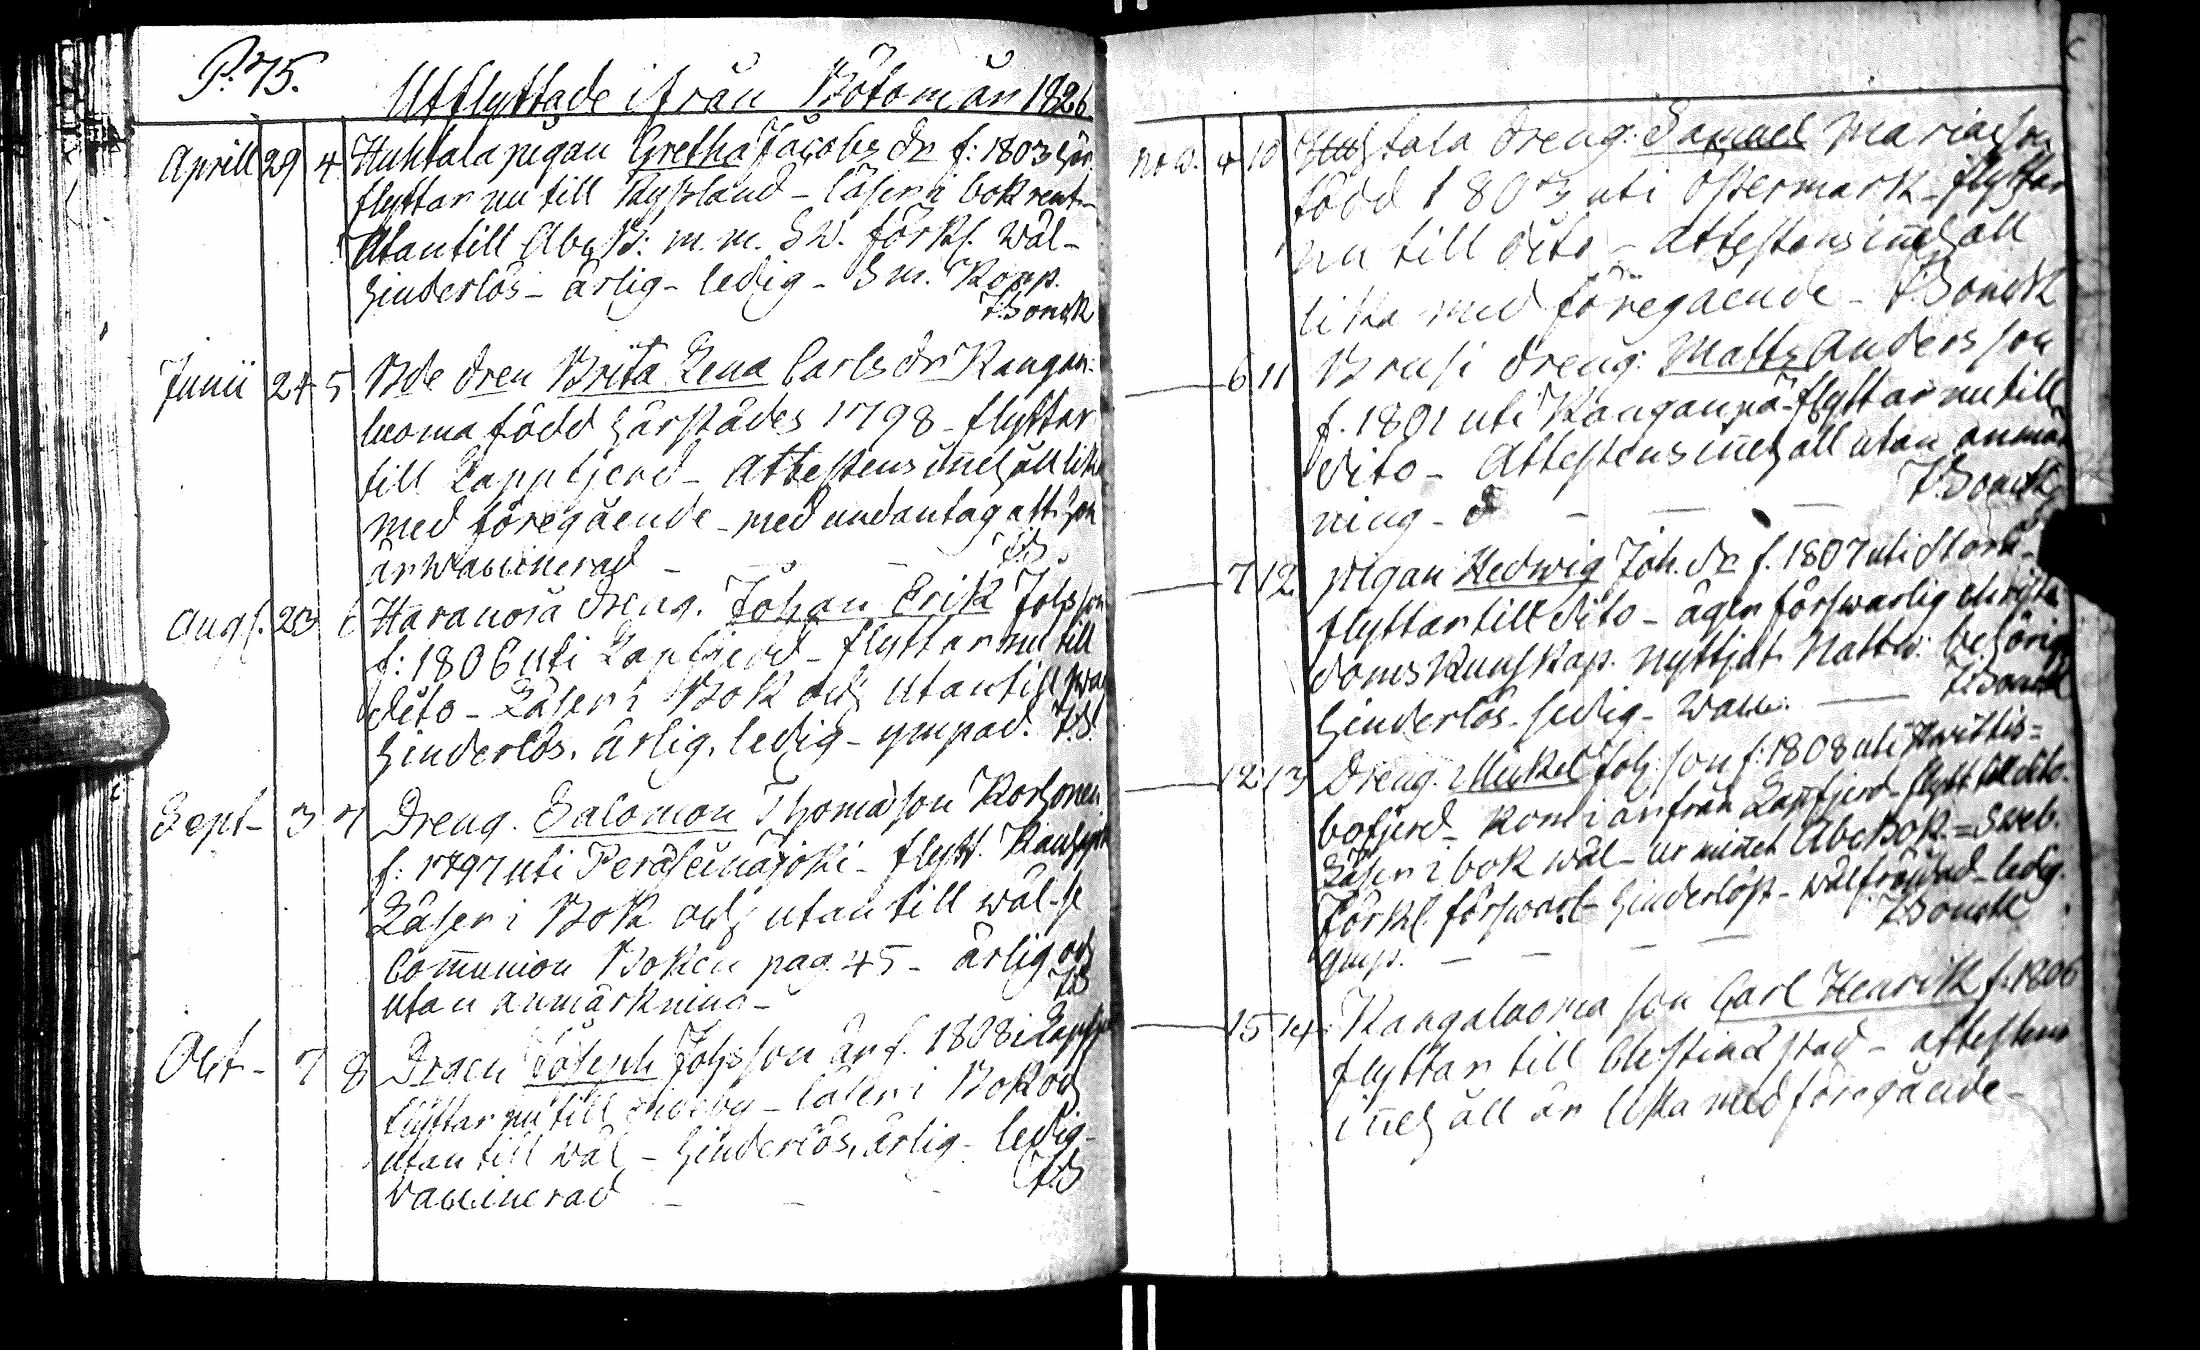 P. 75.
Utflyttade ifrån Bötom år 1826
Aprill 29 4 Huhtala pigan Gretha Jacobs dr f: 1803 här
flyttar nu till Ryssland - läser i bok rent -
Utantill Ab. B: m. m. Sv. förkl. wäl -
hinderlös - ärlig - ledig - Sm. Kopp.
JBonsk
Junii 24 5 Bde dren Brita Lena Carls dr Kangan:
luoma född härstädes 1798 - flyttar
till Lappfjerd - Attestens innehåll lika
med föregående - med undantag att hon
är waccinerad - JB.
Augs. 23 6 Haranoja dreng. Johan Erik Johsson
f: 1806 uti Lapfjerd - flyttar nu till
dito - Läser i Bok och utantill swag
hinderlös. ärlig. ledig - ympad. J.B.
Sept - 3 7 Dreng. Salomon Thomasson Korhonen
f: 1797 uti Peräseinäjoki - flytt.
Läser i Bok och utantill wäl - se
Communion Boken pag. 45 - ärlig och
utan anmärkning - JB
Oct - 7 8 Drgen Joseph Johsson är f. 1808 i Lappfjerd
flyttar nu till - läser i Bok och
utantill wäl - hinderlös, ärlig - ledig -
vaccinerad - - - JB
Nov. 4 10 Huhtala dreng: Samuel Mariaeson
född 1803 uti Östermark - flyttar
nu till dito - attestens innehåll
lika med föregående - JBonsk
6 11 Brusi dreng: Matts Andersson
f. 1801 uti Kanganpä - flyttar nu till
dito - Attestens innehåll utan anmärk
ning - - - - JBonsk
7 12 pigan Hedwig Joh. dr f. 1807 uti Storå -
flyttar till dito - äger försvarlig christen
doms kunskap. nyttjat Nattv: behörigt
hinderlös - ledig - wacc. - JBonsk
12 13 Dreng. Mickel Joh: son f: 1808 uti Hvittis =
bofjerd - kom i år från Lapfjerd - flytt till dito.
Läser i bok wäl - ur minnet Abc Bok = Sveb.
Förkl. försvarl - hinderlös - wälfräjdad - ledig.
ymp. - - - - JBonsk
15 14. Kangaluoma son Carl Henrik f. 1806
flyttar till Christinæ stad - attestens
innehåll är lika med föregående -